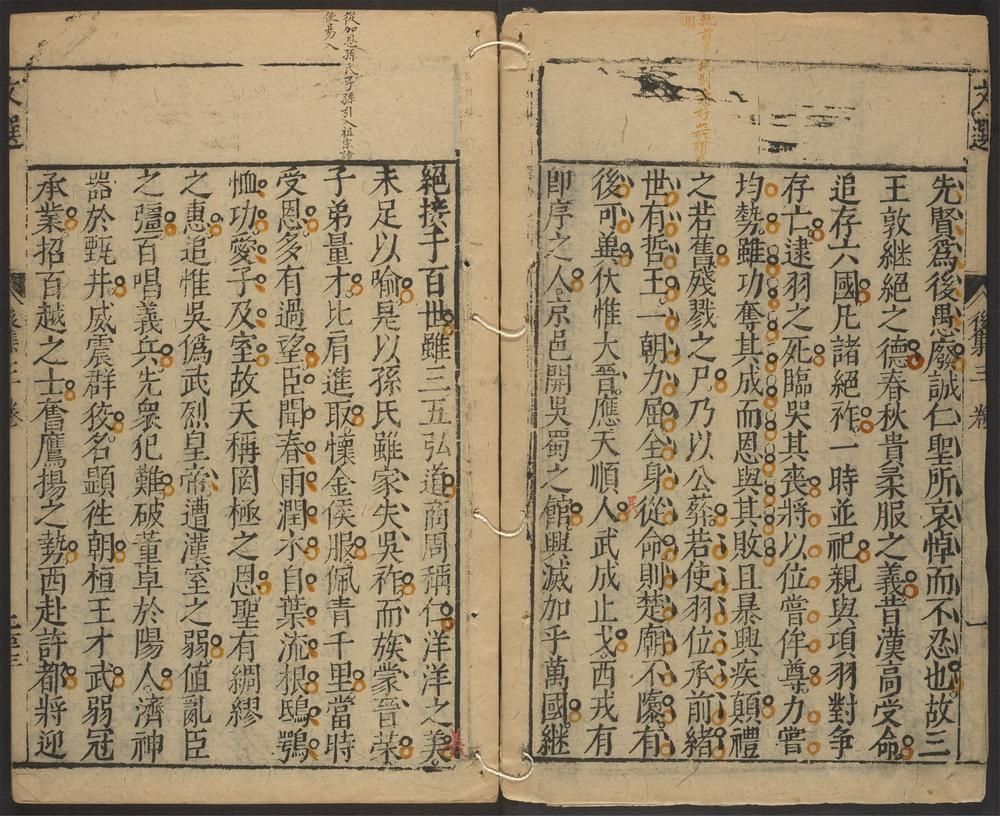 文選
後集二卷
一
先賢爲後愚廢誠仁聖所哀悼而不忍也故三
王敦継絕之德春秋貴柔服之義昔漢高受命
追存六國凡諸絕祚一時並祀親與項羽對爭
存亡逮羽之死臨哭其喪將以位嘗侔尊力嘗
均勢雖功奪其成而恩與其敗且暴興疾顛禮
之若舊殘戮之尸乃以公葬若使羽位承前緒
世有哲王一朝力屈全身從命則楚廟不隳有
後可兾伏惟大晉應天順人武成止戈西戎有
民
即序之人京邑開吳蜀之館興滅加乎萬國継
從加恩孫氏子孫引入祖宗
便易入
絕接于百世雖三五弘道商周稱仁洋洋之美
未足以喻是以孫氏雖家失吳祚而族蒙晉榮
子弟量才比肩進取懷金侯服佩青千里當時
受恩多有過望臣聞春雨潤木自葉流根鴟鴞
恤功愛子及室故天稱罔極之恩聖有綢繆
之惠追惟吳僞武烈皇帝遭漢室之弱値亂臣
之彊百唱義兵先衆犯難破董卓於陽人濟神
器於甄井威震群狡名顕徃朝桓王才武弱冠
承業招百越之士奮鷹揚之勢西赴許都將迎
文選